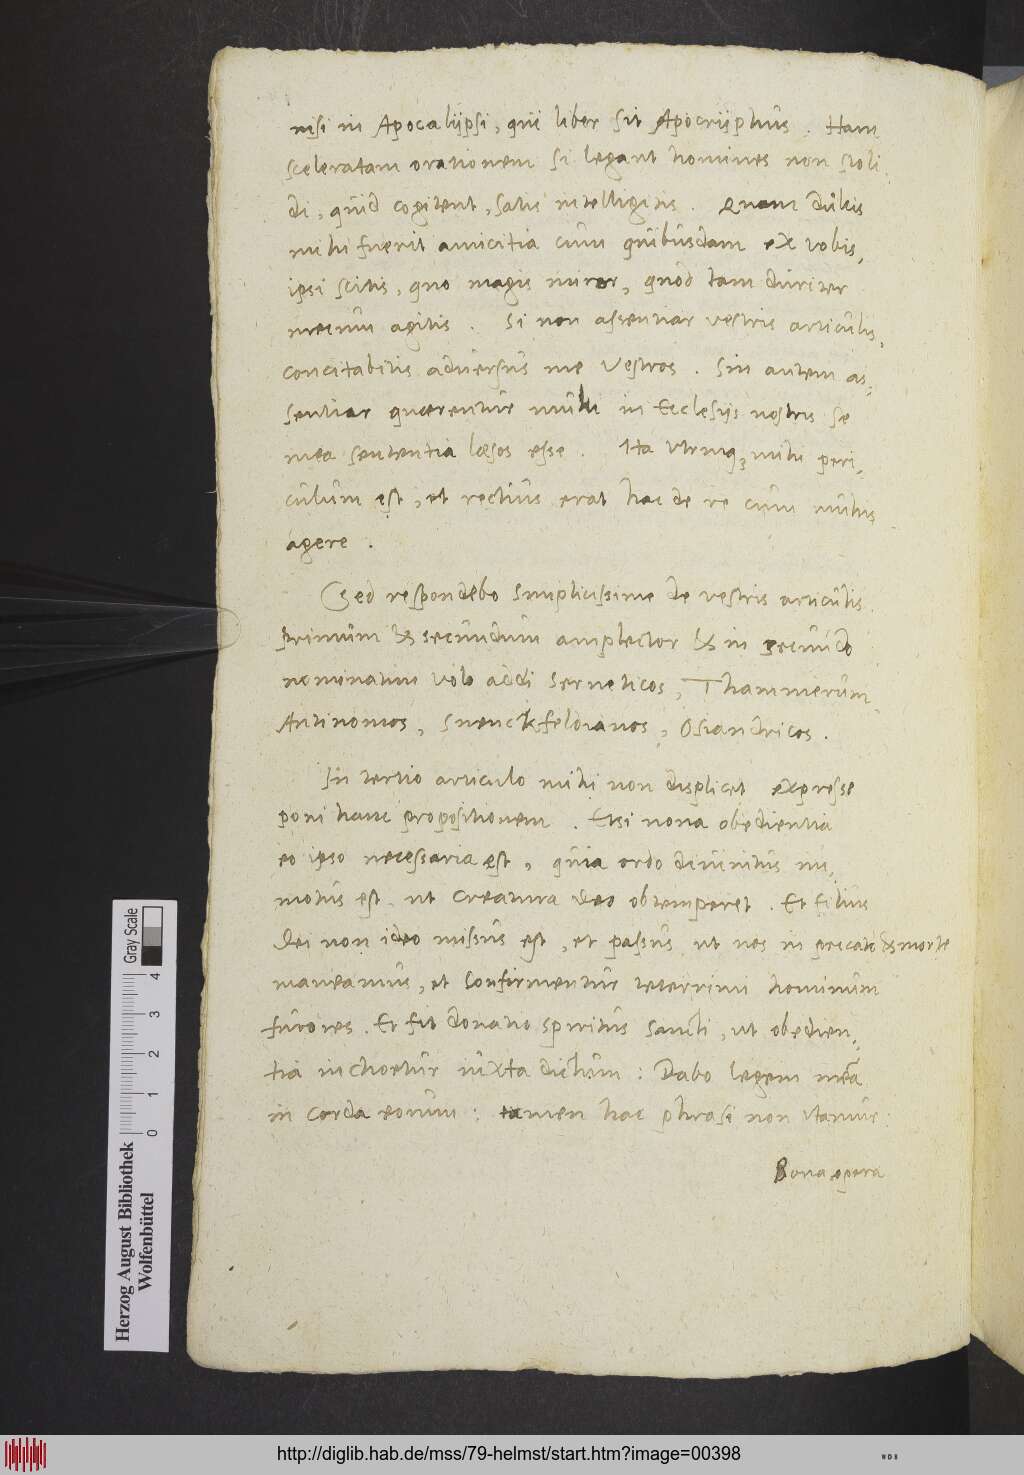 nisi in Apocalijpsi, qui liber sit Apocrijphus. Hanc
sceleratam orationem si legant homines non stoli
di, quid cogitent, satis intelligitis. Quam dulcis
mihi fuerit amicitia cum quibusdam ex vobis,
ipsi scitis, quo magis miror, quod tam duriter
mecum agitis. Si non assentiar vestris articulis,
concitabitis adversus me Vestros. Sin autem as-
sentiar querentur multi in Ecclesijs nostris se
mea sententia læsos esse. Ita Utrinq3 mihi peri-
culum est, et rectius erat hac de re cum multis
agere.
Sed respondebo Simplicissime de vestris articulis
primum & secundum amplector & in secundo
nominatim volo addi Serveticos, Thammerum,
Antinomos, Suenckfeldianos, Osiandricos.
In tertio articulo mihi non displicet expresse
poni hanc propositionem. Etsi nova obedientia
eo ipso necessaria est, quia ordo divinitus im-
motus est, ut Creatura deo obtemperet. Et filius
dei non ideo missus est, et passus, ut nos in peccato & morte
maneamus, et Confirmentur teterrimi hominum
furores. Et fit donatio Spiritus Sancti, ut obedien-
tia inchoetur iuxta dictum: Dabo legem meā
in corda eorum: tamen hac phrasi non Utamur:
Bona opera
Herzog August Bibliothek
Wolfenbüttel
Gray Scale
0 1 2 3 4
http://diglib.hab.de/mss/79-helmst/start.htm?image=00398